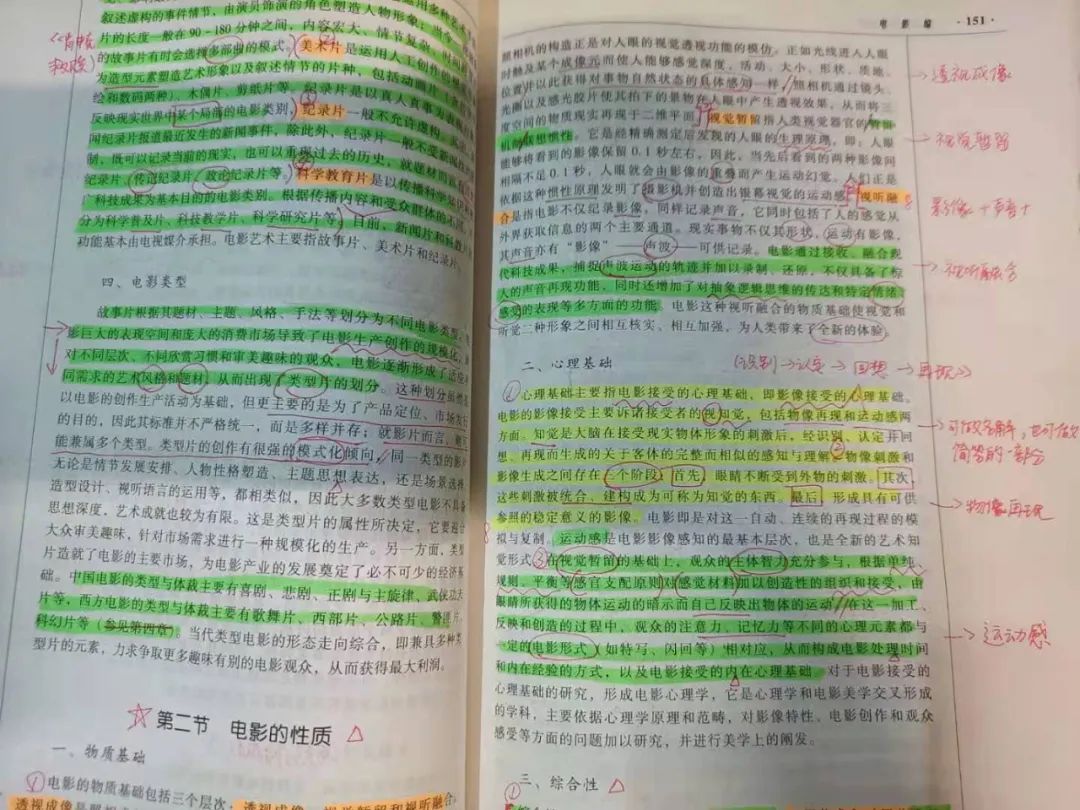 叙述虚构的事件情节，由演员饰演的角色塑造人物形象；当今
片的长度一般在90-180分钟之间，内容宏大，情节复杂，时间
的故事片有时会选择多部曲的模式。美术片是运用人工创作的
为造型元素塑造艺术形象以及叙述情节的片种，包括动画片
绘和数码两种）、木偶片、剪纸片等。纪录片是以真人真事为
反映现实世界中某个局部的电影类别，纪录片一般不允许虚构
闻纪录片报道最近发生的新闻事件，除此外，纪录片一般不受新闻
制，既可以记录当前的现实，也可以重现过去的历史，就题材而言
纪录片、传记纪录片、政论纪录片等。科学教育片是以传播科学知识
广科技成果为基本目的的电影类别。根据传播内容和受众群体的不同
分为科学普及片、科技教学片、科学研究片等。目前，新闻片和科教片
功能基本由电视媒介承担。电影艺术主要指故事片、美术片和纪录片。
四、电影类型
故事片根据其题材、主题、风格、手法等划分为不同电影类型。
影巨大的表现空间和庞大的消费市场导致了电影生产创作的规模化，
对不同层次、不同欣赏习惯和审美趣味的观众，电影逐渐形成了适应
同需求的艺术风格和题材，从而出现了类型片的划分。这种划分虽然
以电影的创作生产活动为基础，但更主要的是为了产品定位、市场发行
的目的，因此其标准并不严格统一，而是多样并存；就影片而言，
能兼属多个类型。类型片的创作有很强的模式化倾向，同一类型的影片
无论是情节发展安排、人物性格塑造、主题思想表达，还是场景选择
造型设计、视听语言的运用等，都相类似，因此大多数类型电影不具备
思想深度，艺术成就也较为有限。这是类型片的属性所决定，它要迎合
大众审美趣味，针对市场需求进行一种规模化的生产。另一方面，类型
片造就了电影的主要市场，为电影产业的发展奠定了必不可少的经济基
础。中国电影的类型与体裁主要有喜剧、悲剧、正剧与主旋律、武侠功夫
片等，西方电影的类型与体裁主要有歌舞片、西部片、公路片、警匪片、
科幻片等（参见第四章）。当代类型电影的形态走向综合，即兼具多种类
型片的元素，力求争取更多趣味有别的电影观众，从而获得最大利润。
第二节 电影的性质
一、物质基础
①电影的物质基础包括三个层次：
透视成像
视觉暂留和视听融合。
电影编 ·151·
照相机的构造正是对人眼的视觉透视功能的模仿。正如光线进入人眼
时触及某个成像元而使人能够感觉深度、活动、大小、形状、质地、
位置并以此获得对事物自然状态的具体感知一样，照相机通过镜头、
光圈以及感光胶片使其拍下的景物在人眼中产生透视效果，从而将三
度空间的物质现实再现于二维平面。视觉暂留指人类视觉器官的暂留
机的冥想惯性。它是经精确测定后发现的人眼的生理原理，即：人眼
能够将看到的影像保留0.1秒左右，因此，当先后看到的两种影像间
相隔不足0.1秒，人眼就会由影像的重叠而产生运动幻觉。人们正是
依据这种惯性原理发明了摄影机并创造出银幕视觉的运动感。视听融
合是指电影不仅纪录影像，同样记录声音，它同时包括了人的感觉从
外界获取信息的两个主要通道。现实事物不仅其形状、运动有影像，
其声音亦有“影像”——声波——可供记录。电影通过接收、融合现
代科技成果，捕捉声波运动的轨迹并加以录制、还原，不仅具备了惊
人的声音再现功能，同时还增加了对抽象逻辑思维的传达和特定情绪
感受的表现等多方面的功能。电影这种视听融合的物质基础使视觉和
听觉二种形象之间相互核实、相互加强，为人类带来了全新的体验。
二、心理基础
（识别→认定→回想→再现）
①心理基础主要指电影接受的心理基础，即影像接受的心理基础。
电影的影像接受主要诉诸接受者的视知觉，包括物像再现和运动感两
方面。知觉是大脑在接受现实物体形象的刺激后，经识别、认定并回
想、再现而生成的关于客体的完整而相似的感知与理解。②物像刺激和
影像生成之间存在三个阶段：首先，眼睛不断受到外物的刺激。其次
这些刺激被统合、建构成为可称为知觉的东西。最后，形成具有可供
参照的稳定意义的影像。电影即是对这一自动、连续的再现过程的模
拟与复制。运动感是电影影像感知的最基本层次，也是全新的艺术知
觉形式③在视觉暂留的基础上，观众的主体智力充分参与，根据单纯
规则、平衡等感官支配原则对感觉材料加以创造性的组织和接受，由
眼睛所获得的物体运动的暗示而自己反映出物体的运动。在这一加工、
反映和创造的过程中，观众的注意力、记忆力等不同的心理元素都与
一定的电影形式（如特写、闪回等）相对应，从而构成电影处理时间
和内在经验的方式，以及电影接受的内在心理基础。对于电影接受的
心理基础的研究，形成电影心理学，它是心理学和电影美学交叉形成
的学科，主要依据心理学原理和范畴，对影像特性、电影创作和观众
感受等方面的问题加以研究，并进行美学上的阐发。
三、综合性
透视成像
视觉暂留
影像+声音
视听融合
可做名解，也可做
简答的一部分
物像再现
运动感